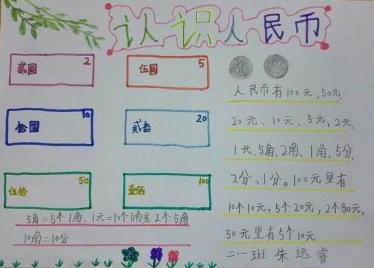 认识人民币
贰圆 2
伍圆 5
拾圆 10
贰拾 20
伍拾 50
壹佰 100
5角=5个1角、1元=10个1角或2个5角
10角=10分
人民币有100元、50元、
20元、10元、5元、2元、
1元、5角、2角、1角、5分、
2分、1分。100元里有
10个10元，5个20元，2个50元，
50元里有5个10元
二一班 朱远睿